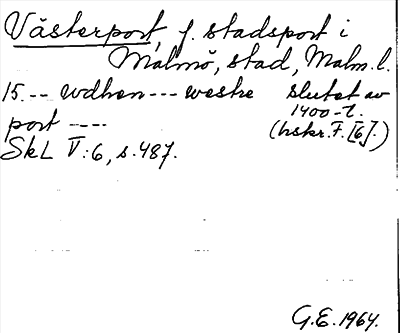 Västerport, f. stadsport i
Malmö, stad, Malm. l.
15.-- wdhen --- weske slutet av
port ---- 1400-t.
(hskr. F. [6].)
SkL V:6, s. 487.
G.E. 1964.